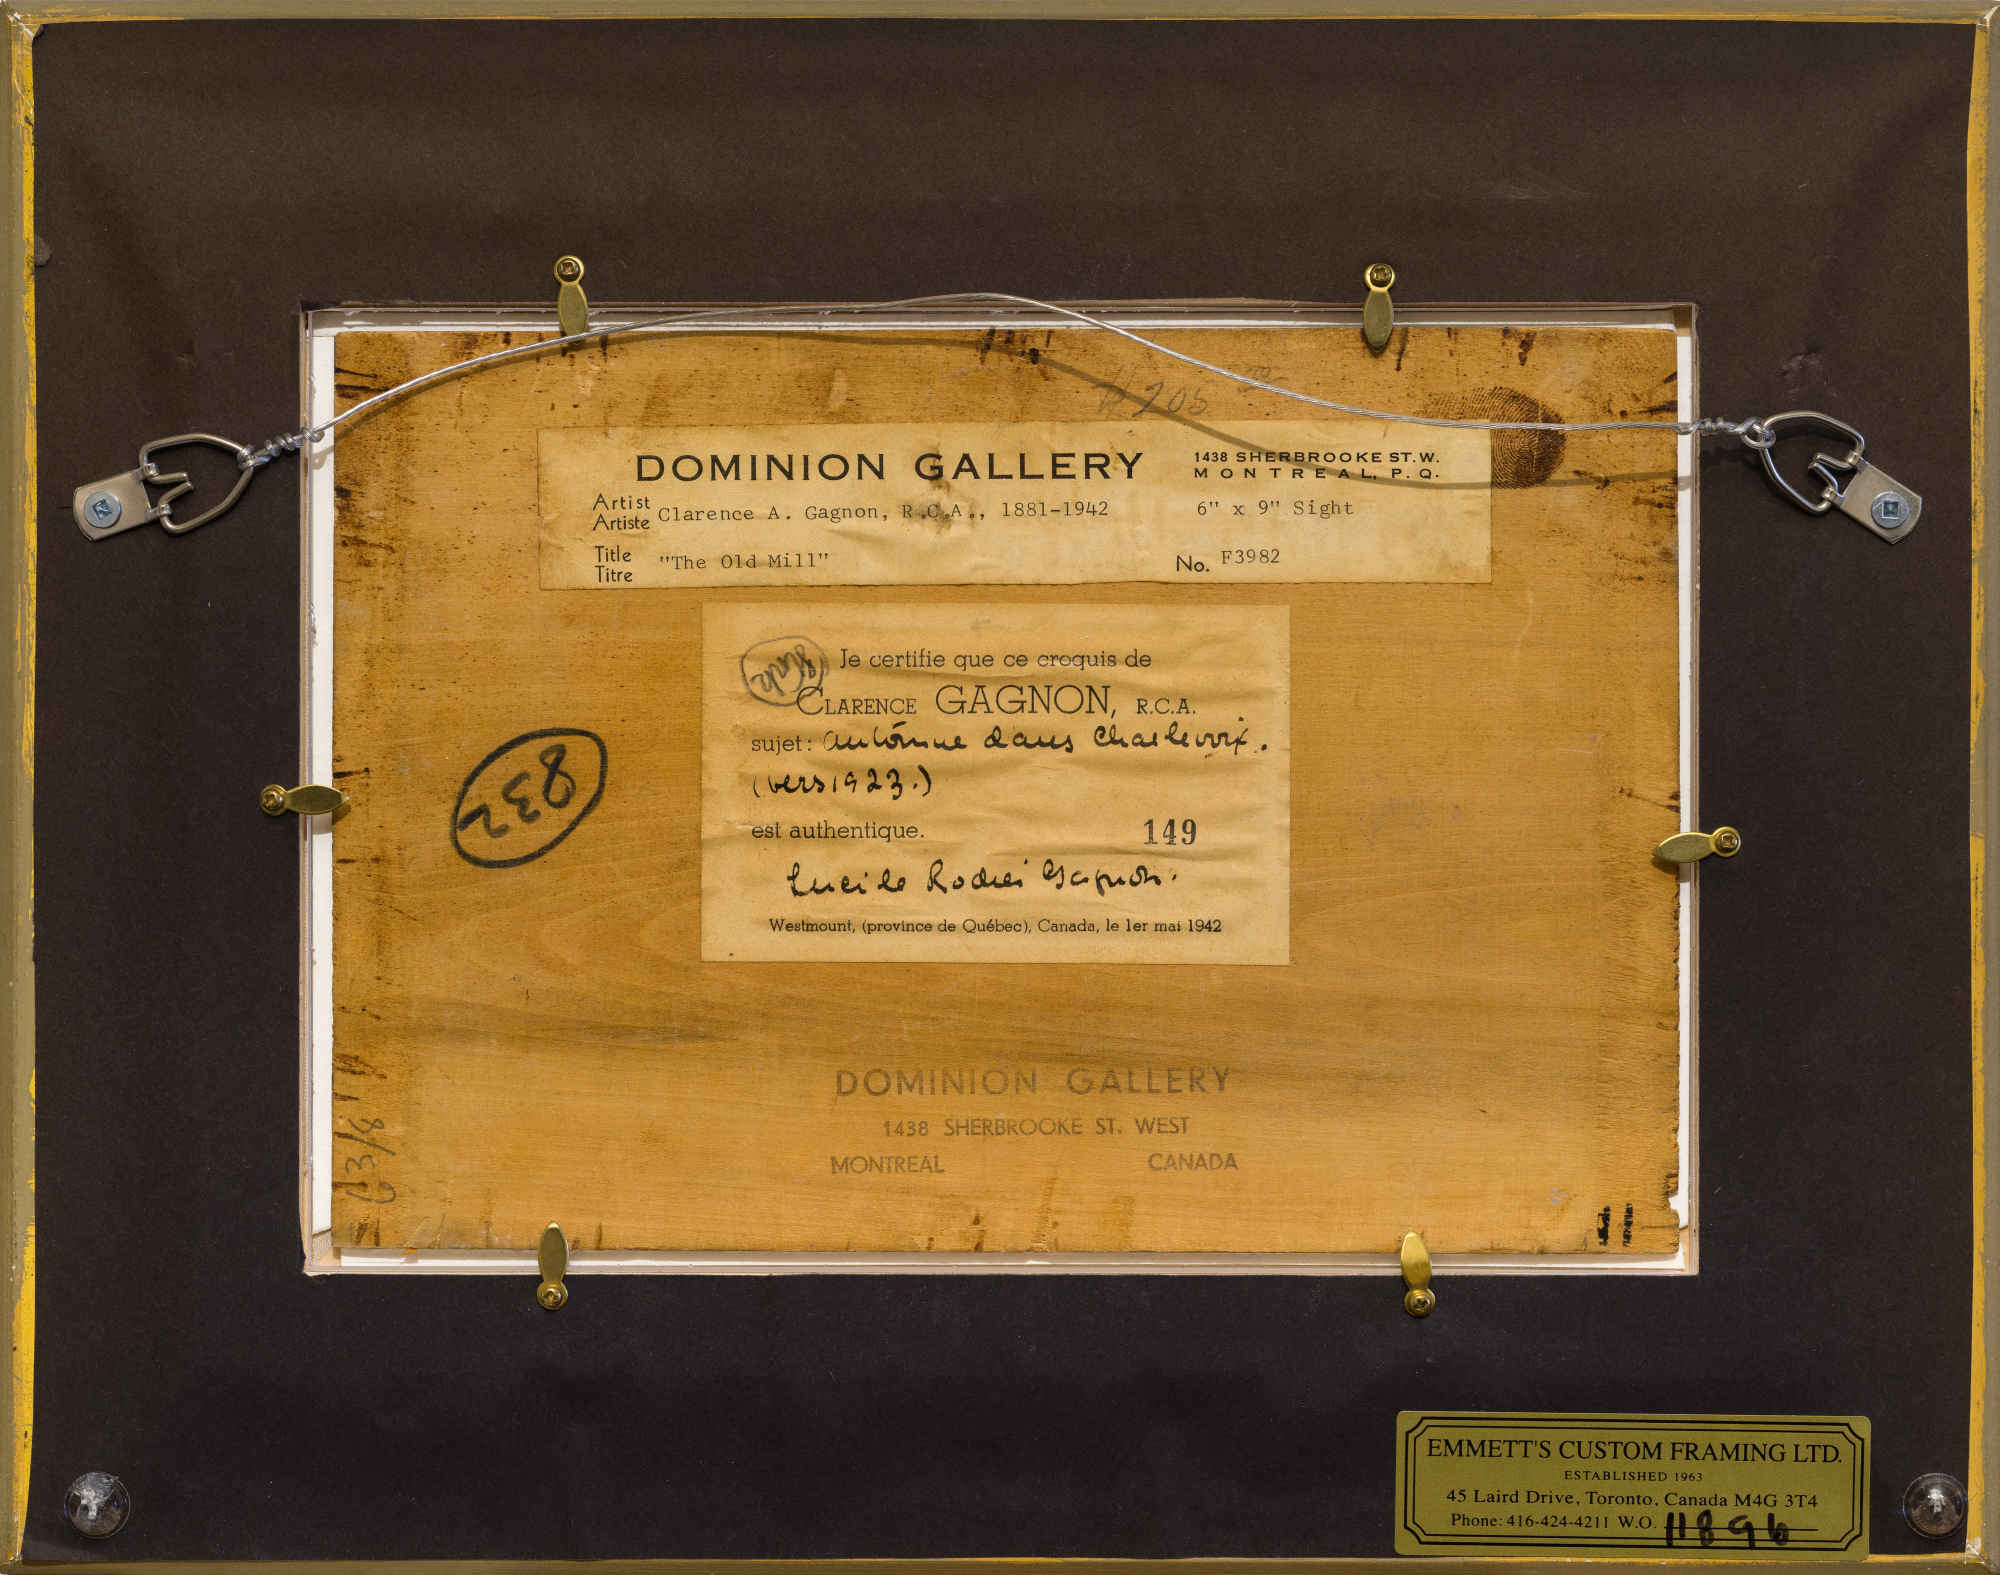 205
DOMINION GALLERY
1438 SHERBROOKE ST. W.
MONTREAL, P. Q.
Artist
Artiste
Clarence A. Gagnon, R.C.A., 1881-1942
6" x 9" Sight
Title
Titre
"The Old Mill"
No. F3982
Je certifie que ce croquis de
CLARENCE GAGNON, R.C.A.
sujet: Automne dans Charlevoix.
(vers 1923.)
est authentique.
149
Lucile Rodier Gagnon.
Westmount, (province de Québec), Canada, le 1er mai 1942
832
DOMINION GALLERY
1438 SHERBROOKE ST. WEST
MONTREAL CANADA
EMMETT'S CUSTOM FRAMING LTD.
ESTABLISHED 1963
45 Laird Drive, Toronto, Canada M4G 3T4
Phone: 416-424-4211 W.O. 11896